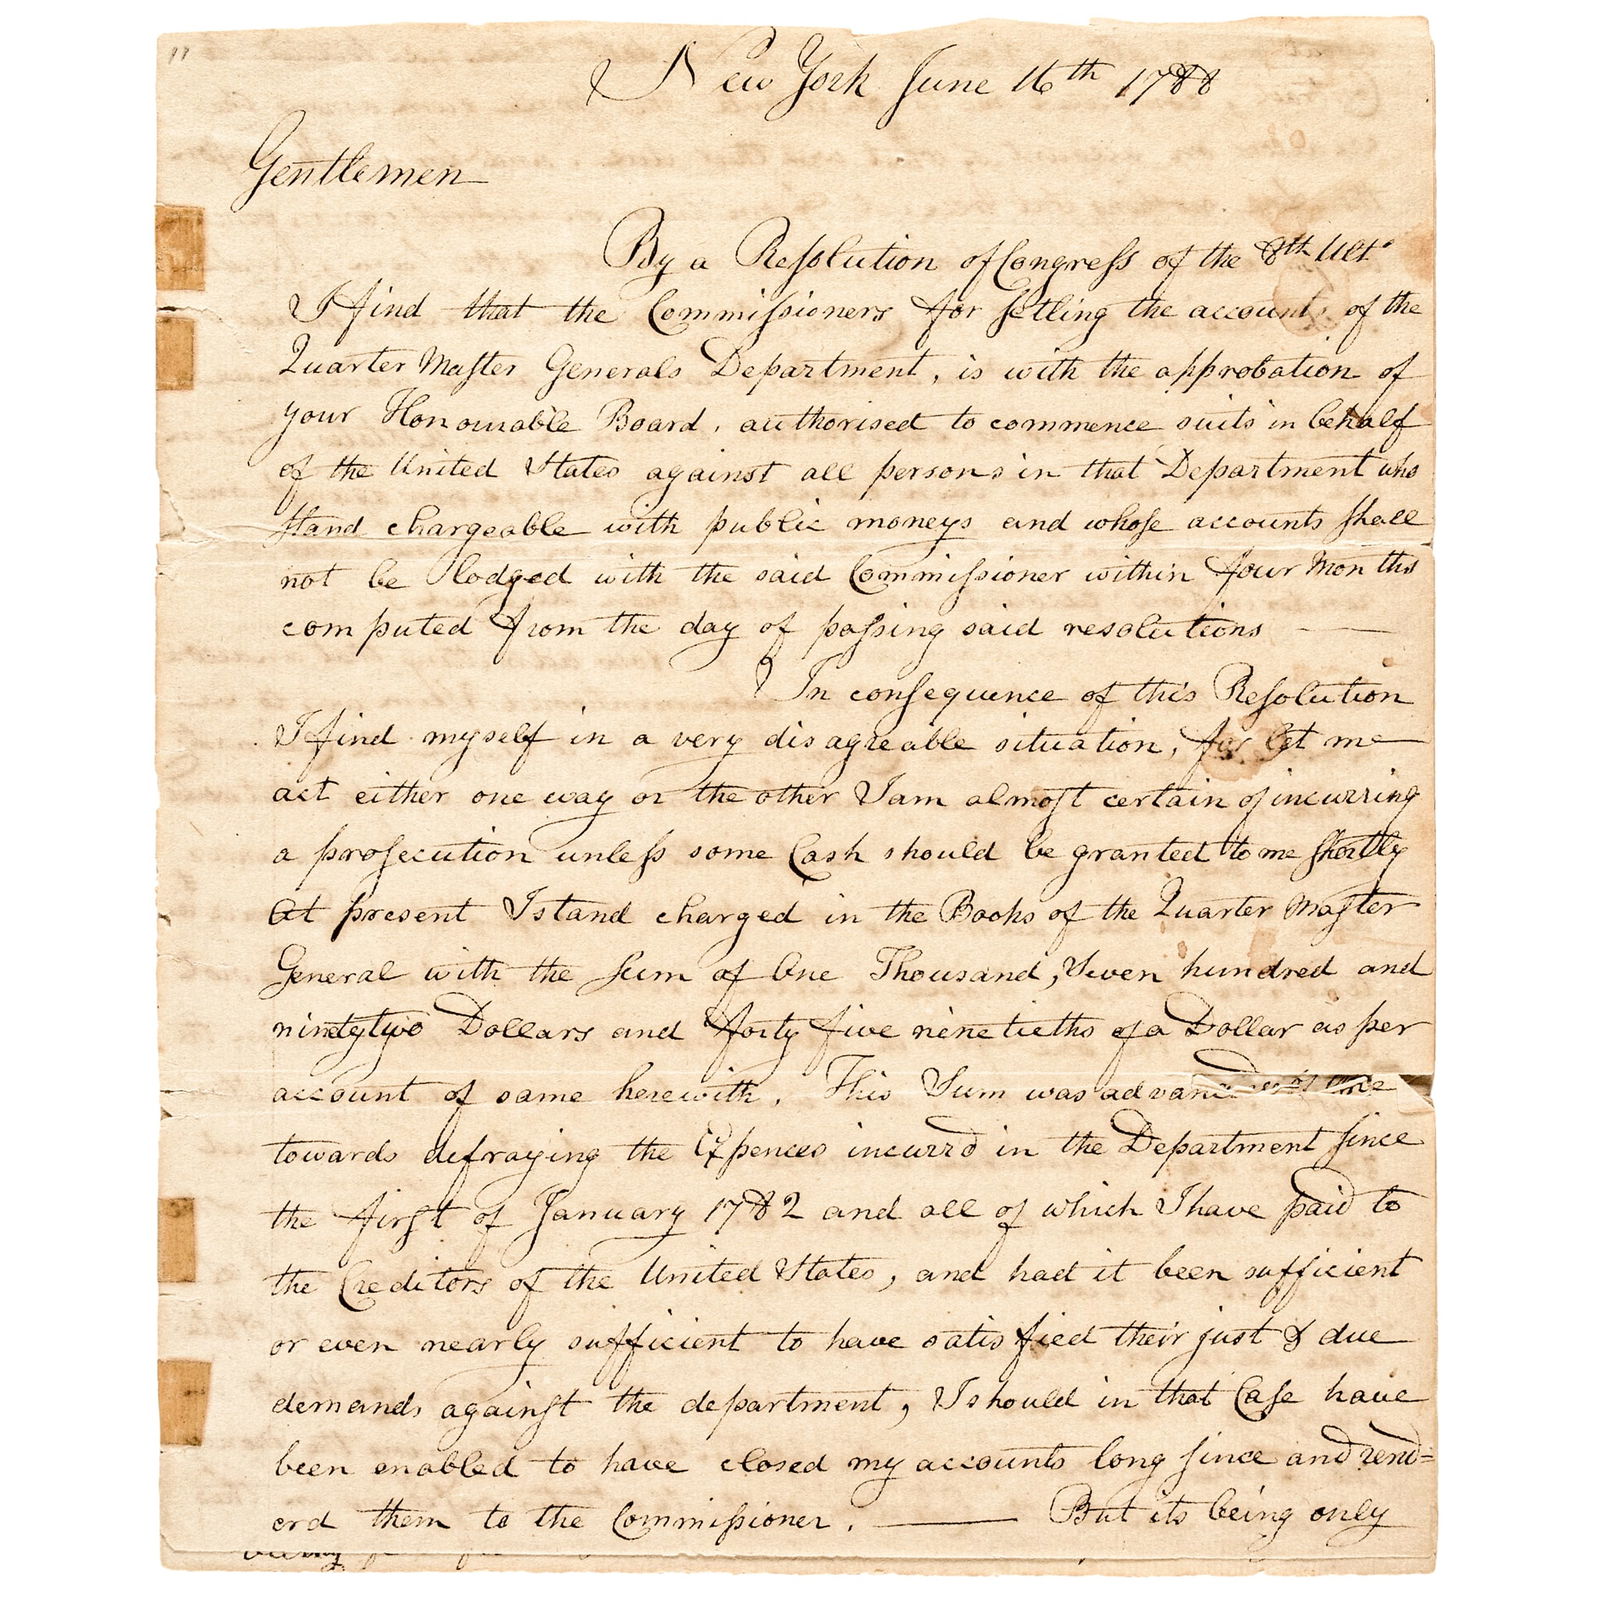 New York June 16th 1788
Gentlemen
By a Resolution of Congress of the 8th Ulto
I find that the Commissioners for setling the accounts of the
Quarter Master Generals Department, is with the approbation of
your Honourable Board, authorised to commence suits in behalf
of the United States against all persons in that Department who
stand chargeable with public moneys and whose accounts shall
not be lodged with the said Commissioner within four Months
computed from the day of passing said resolutions —
In consequence of this Resolution
I find myself in a very disagreable situation, for let me
act either one way or the other I am almost certain of incurring
a prosecution unless some Cash should be granted to me shortly
At present I stand charged in the Books of the Quarter Master
General with the Sum of One Thousand, Seven hundred and
ninety two Dollars and forty five ninetieths of a Dollar as per
account of same herewith. This Sum was advanced me
towards defraying the Expences incurrd in the Department since
the first of January 1782 and all of which I have paid to
the Creditors of the United States, and had it been sufficient
or even nearly sufficient to have satisfied their just & due
demands against the department, I should in that Case have
been enabled to have closed my accounts long since and rend=
erd them to the Commissioner. — But its being only